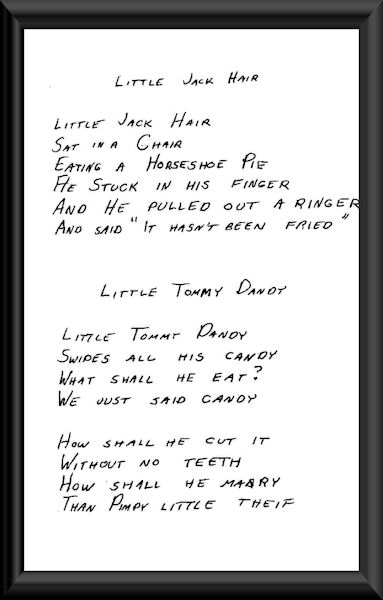 LITTLE JACK HAIR
LITTLE JACK HAIR
SAT IN A CHAIR
EATING A HORSESHOE PIE
HE STUCK IN HIS FINGER
AND HE PULLED OUT A RINGER
AND SAID "IT HASN'T BEEN FRIED"
LITTLE TOMMY DANDY
LITTLE TOMMY DANDY
SWIPES ALL HIS CANDY
WHAT SHALL HE EAT?
WE JUST SAID CANDY
HOW SHALL HE CUT IT
WITHOUT NO TEETH
HOW SHALL HE MARRY
THAN PIMPY LITTLE THEIF